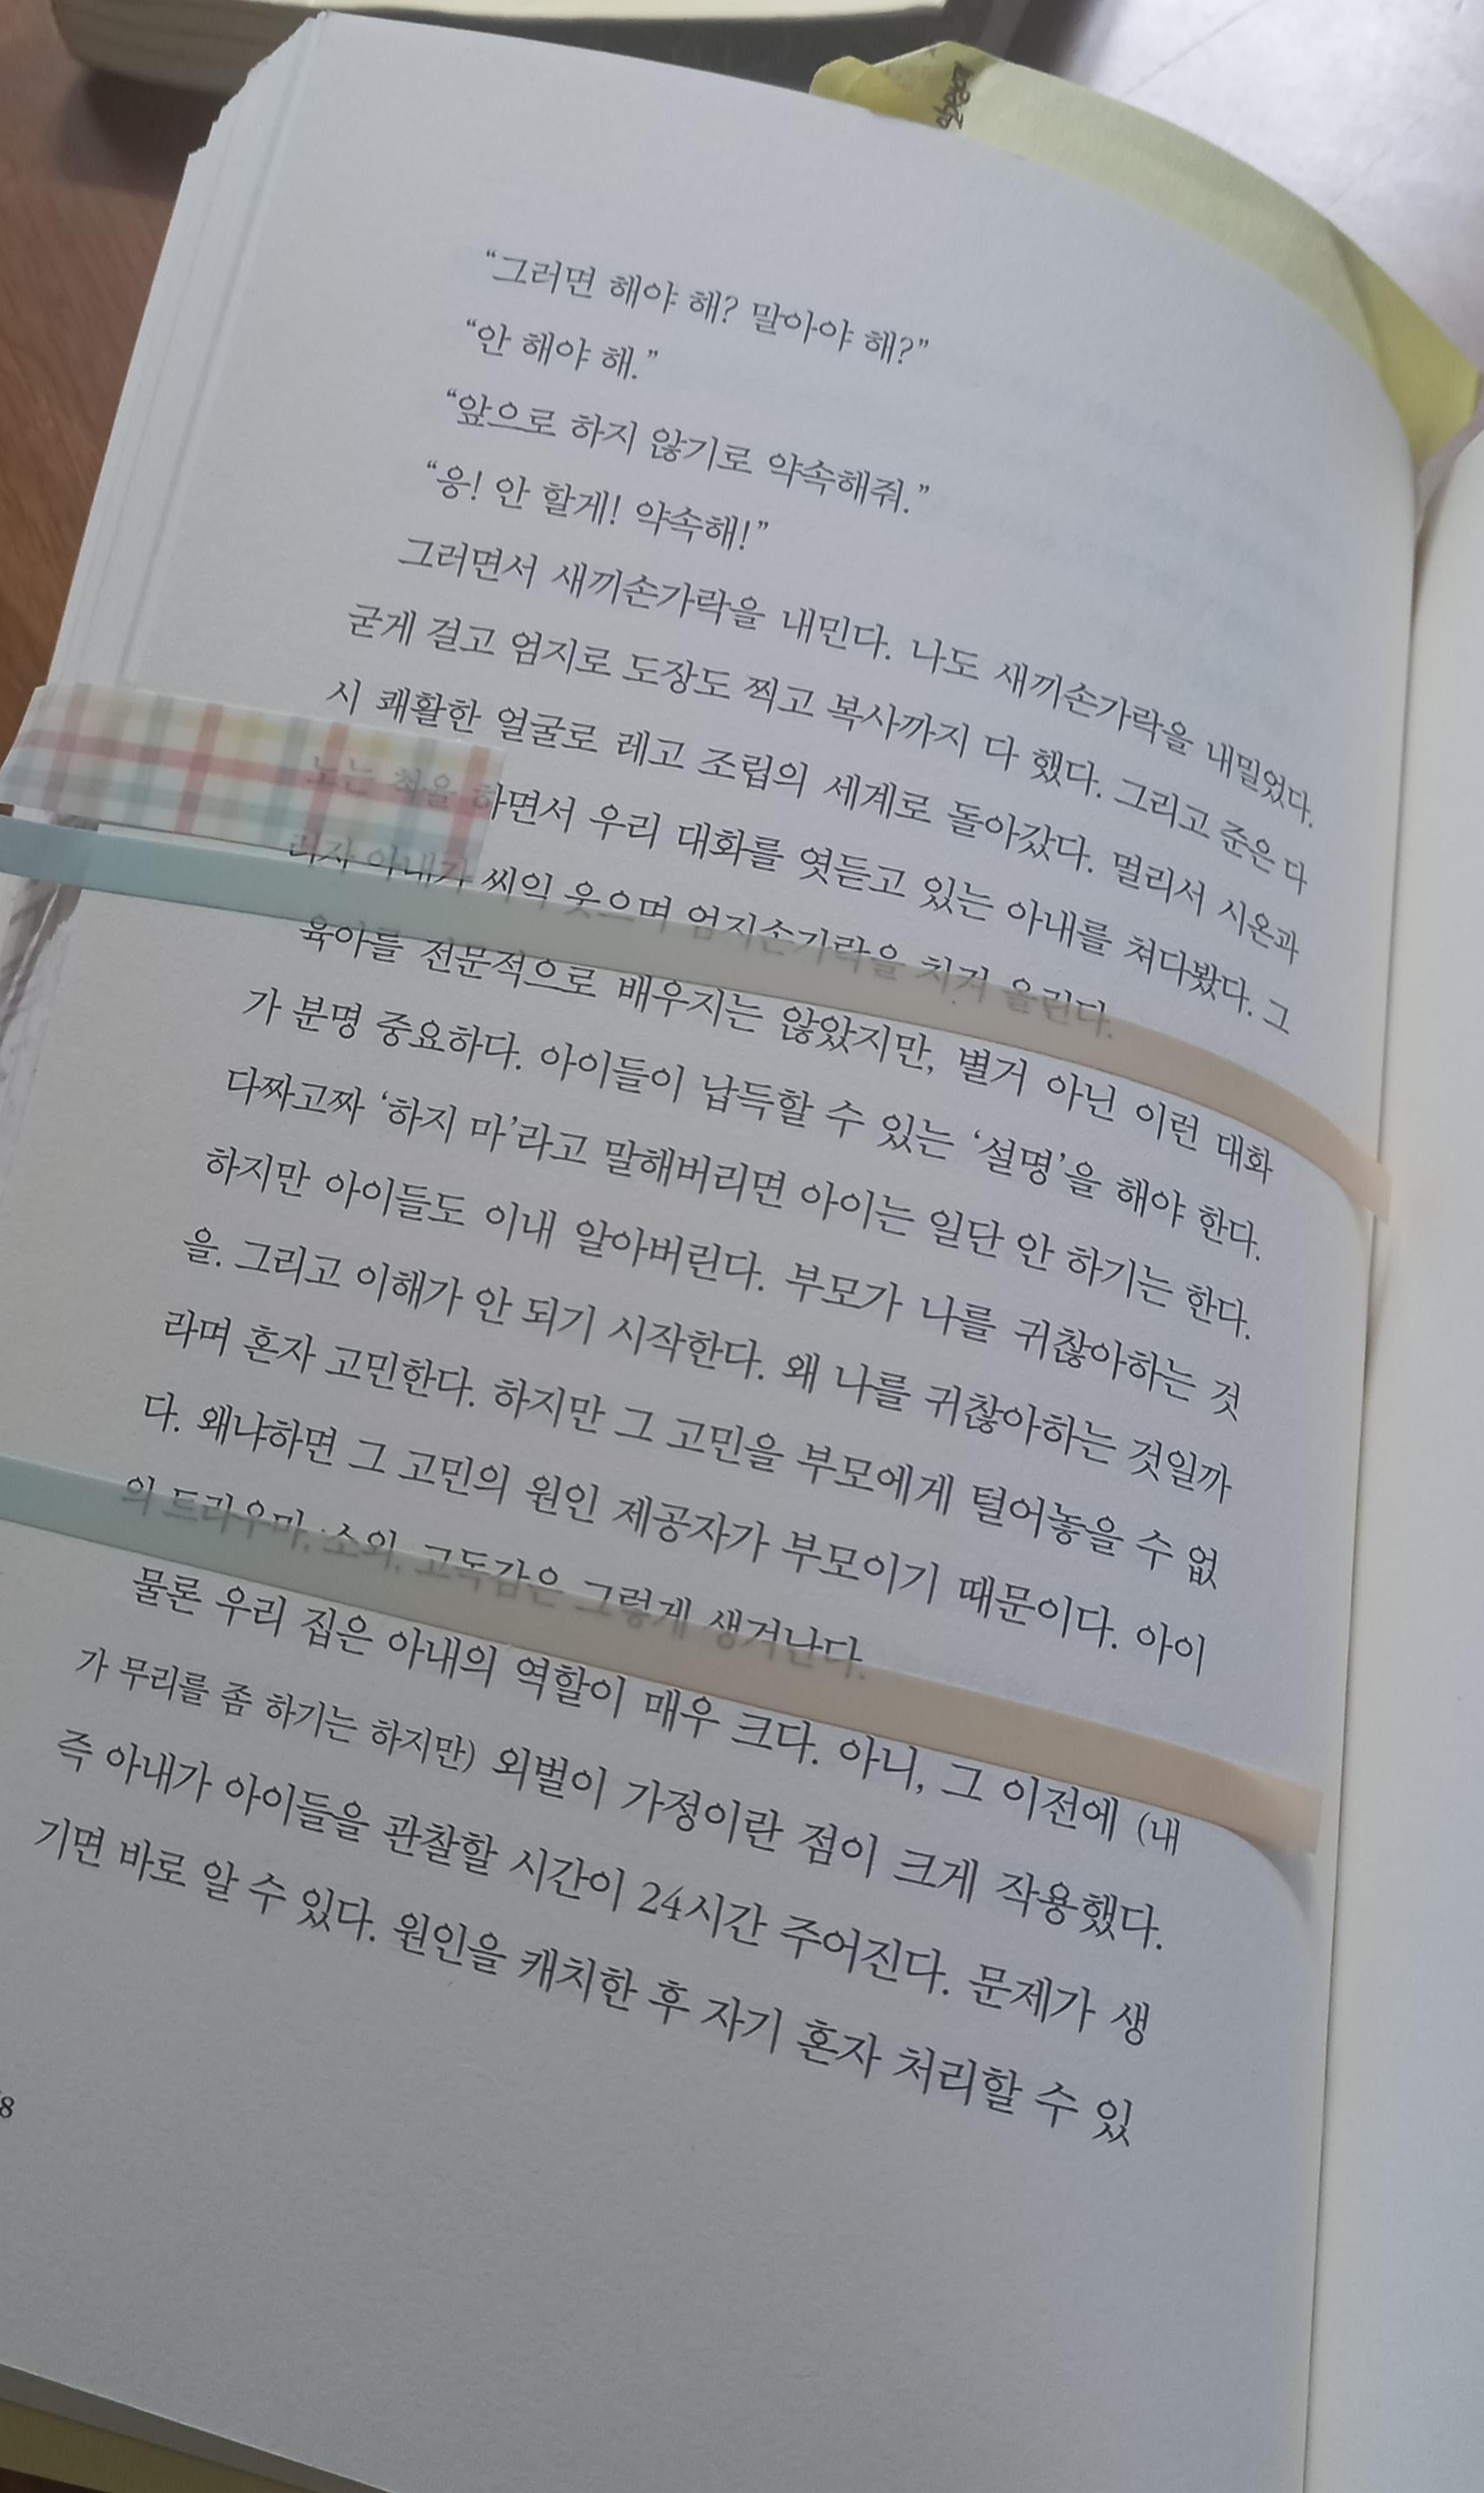 “그러면 해야 해? 말아야 해?”
“안 해야 해.”
“앞으로 하지 않기로 약속해줘.”
“웅! 안 할게! 약속해!”
그러면서 새끼손가락을 내민다. 나도 새끼손가락을 내밀었다.
굳게 걸고 엄지로 도장도 찍고 복사까지 다 했다. 그리고 준은 다
시 쾌활한 얼굴로 레고 조립의 세계로 돌아갔다. 멀리서 시온과
노는 척을 하면서 우리 대화를 엿듣고 있는 아내를 쳐다봤다. 그
러자 아내가 씨익 웃으며 엄지손가락을 치켜 올린다.
육아를 전문적으로 배우지는 않았지만, 별거 아닌 이런 대화
가 분명 중요하다. 아이들이 납득할 수 있는 ‘설명’을 해야 한다.
다짜고짜 ‘하지 마’라고 말해버리면 아이는 일단 안 하기는 한다.
하지만 아이들도 이내 알아버린다. 부모가 나를 귀찮아하는 것
을. 그리고 이해가 안 되기 시작한다. 왜 나를 귀찮아하는 것일까
라며 혼자 고민한다. 하지만 그 고민을 부모에게 털어놓을 수 없
다. 왜냐하면 그 고민의 원인 제공자가 부모이기 때문이다. 아이
의 트라우마, 소외, 고독감은 그렇게 생겨난다.
물론 우리 집은 아내의 역할이 매우 크다. 아니, 그 이전에 (내
가 무리를 좀 하기는 하지만) 외벌이 가정이란 점이 크게 작용했다.
즉 아내가 아이들을 관찰할 시간이 24시간 주어진다. 문제가 생
기면 바로 알 수 있다. 원인을 캐치한 후 자기 혼자 처리할 수 있